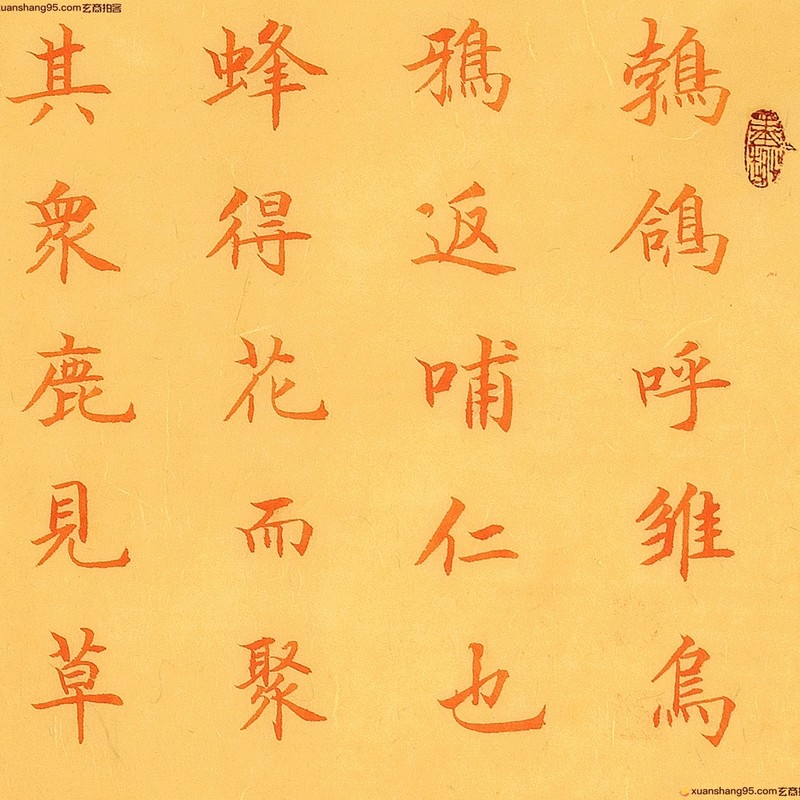 鵓鴿呼雛烏
鴉返哺仁也
蜂得花而聚
其衆鹿見草
xuanshang95.com玄商拍客
xuanshang95.com玄商拍